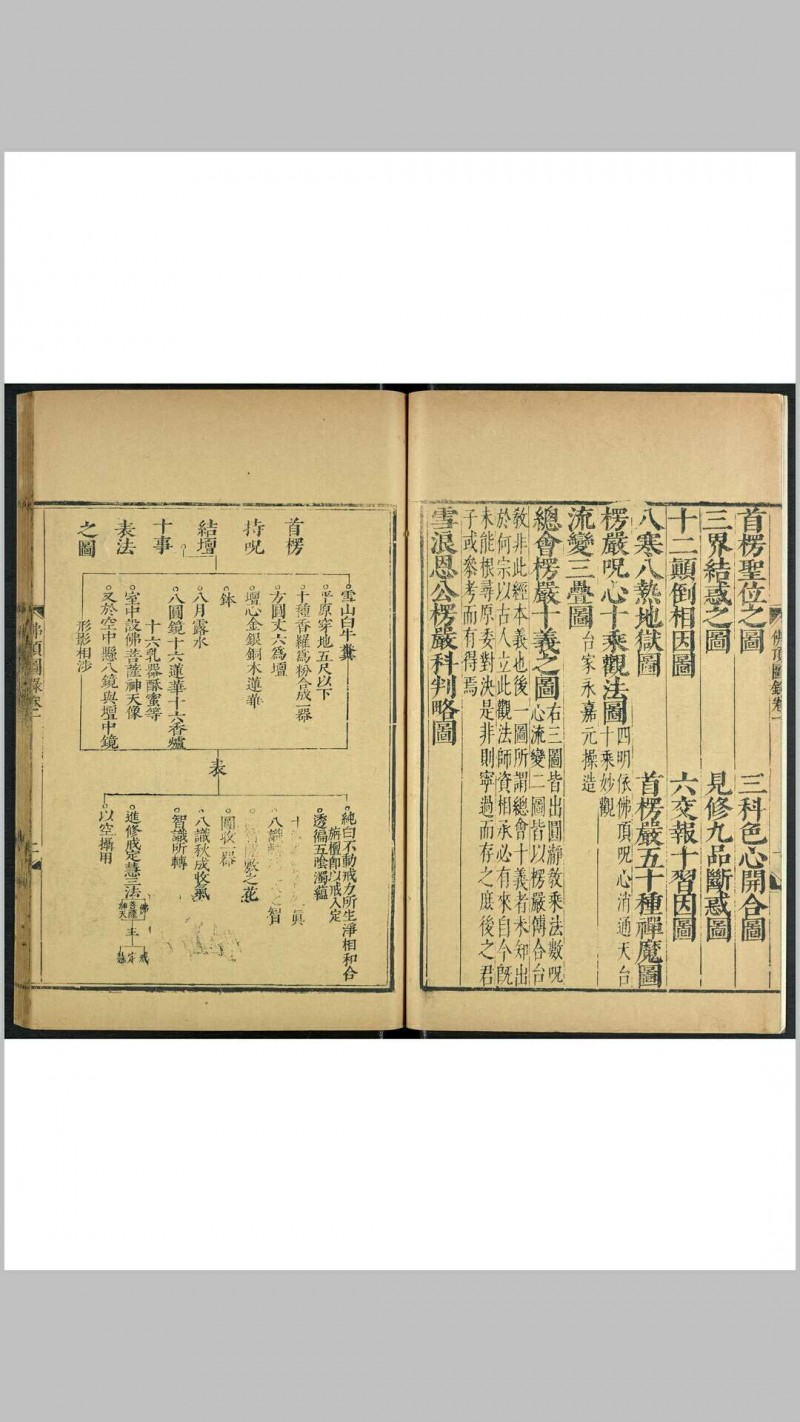 首楞聖位之圖
三科色心開合圖
三界結惑之圖
見修九品斷惑圖
十二顛倒相因圖
六交報十習因圖
八寒八熱地獄圖
首楞嚴五十種禪魔圖
楞嚴呪心十乘觀法圖
四明依佛頂呪心消通天台
十乘妙觀
流變三疊圖
台家永嘉元操造
總會楞嚴十義之圖
右三圖皆出圓瀞教乘法數呪
心流變二圖皆以楞嚴傳合台
教非此經本義也後一圖所謂總會十義者未知出
於何宗以古人立此觀法師資相承必有來自今既
未能根尋原委對決是非則寧過而存之庶後之君
子或參考而有得焉
雪浪恩公楞嚴科判略圖
佛頂圖錄卷一
首楞
持呪
結壇
十事
表法
之圖
雪山白牛糞
平原穿地五尺以下
十種香羅爲粉合成一器
方圓丈六爲壇
壇心金銀銅木蓮華
鉢
八月露水
八圓鏡十六蓮華十六香爐
十六乳器酥蜜等
室中設佛菩薩神天像
又於空中懸八鏡與壇中鏡
形影相涉
表
純白不動戒力所生淨相和合
旃檀即以戒入定
透徧五陰濁蘊
十
真
八識
之智
之花
圖收一器
八識秋成收氣
智識所轉
進修戒定慧三法
佛
菩薩
神天
主
戒
定
慧
以空攝用
佛頂圖錄卷一
二